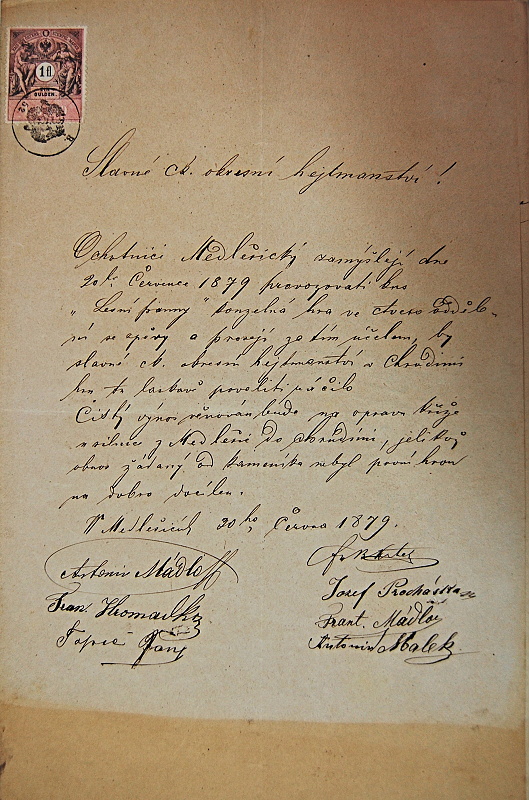 1 fl.
GULDEN
Slavné ck. okresní hejtmanství!
Ochotníci Medlešický zamýšlejí dne
20ho Července 1879 provozovati kus
„Lesní panny" kouzelná hra ve dvou odděle-
ní se zpěvy a prosejí za tím účelem, by
slavné ck. okresní hejtmanství v Chrudimi
hru tu laskavě povoliti ráčilo
Čistý výnos věnován bude na opravu kříže
u silnice z Medlešic do Chrudimi, jelikož
obnos žádaný od kameníka nebyl první hrou
na dobro docílen.
V Medlešicích 20ho Června 1879.
Antonín Mádlo
Fran. Hromádko
Josef Procházka
Frant. Mádlo
Antonín Malek